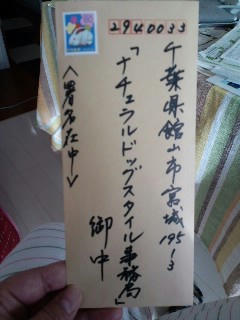 2940033
千葉県館山市宮城195-3
「ナチュラルドッグスタイル事務局」
御中
＜署名在中＞